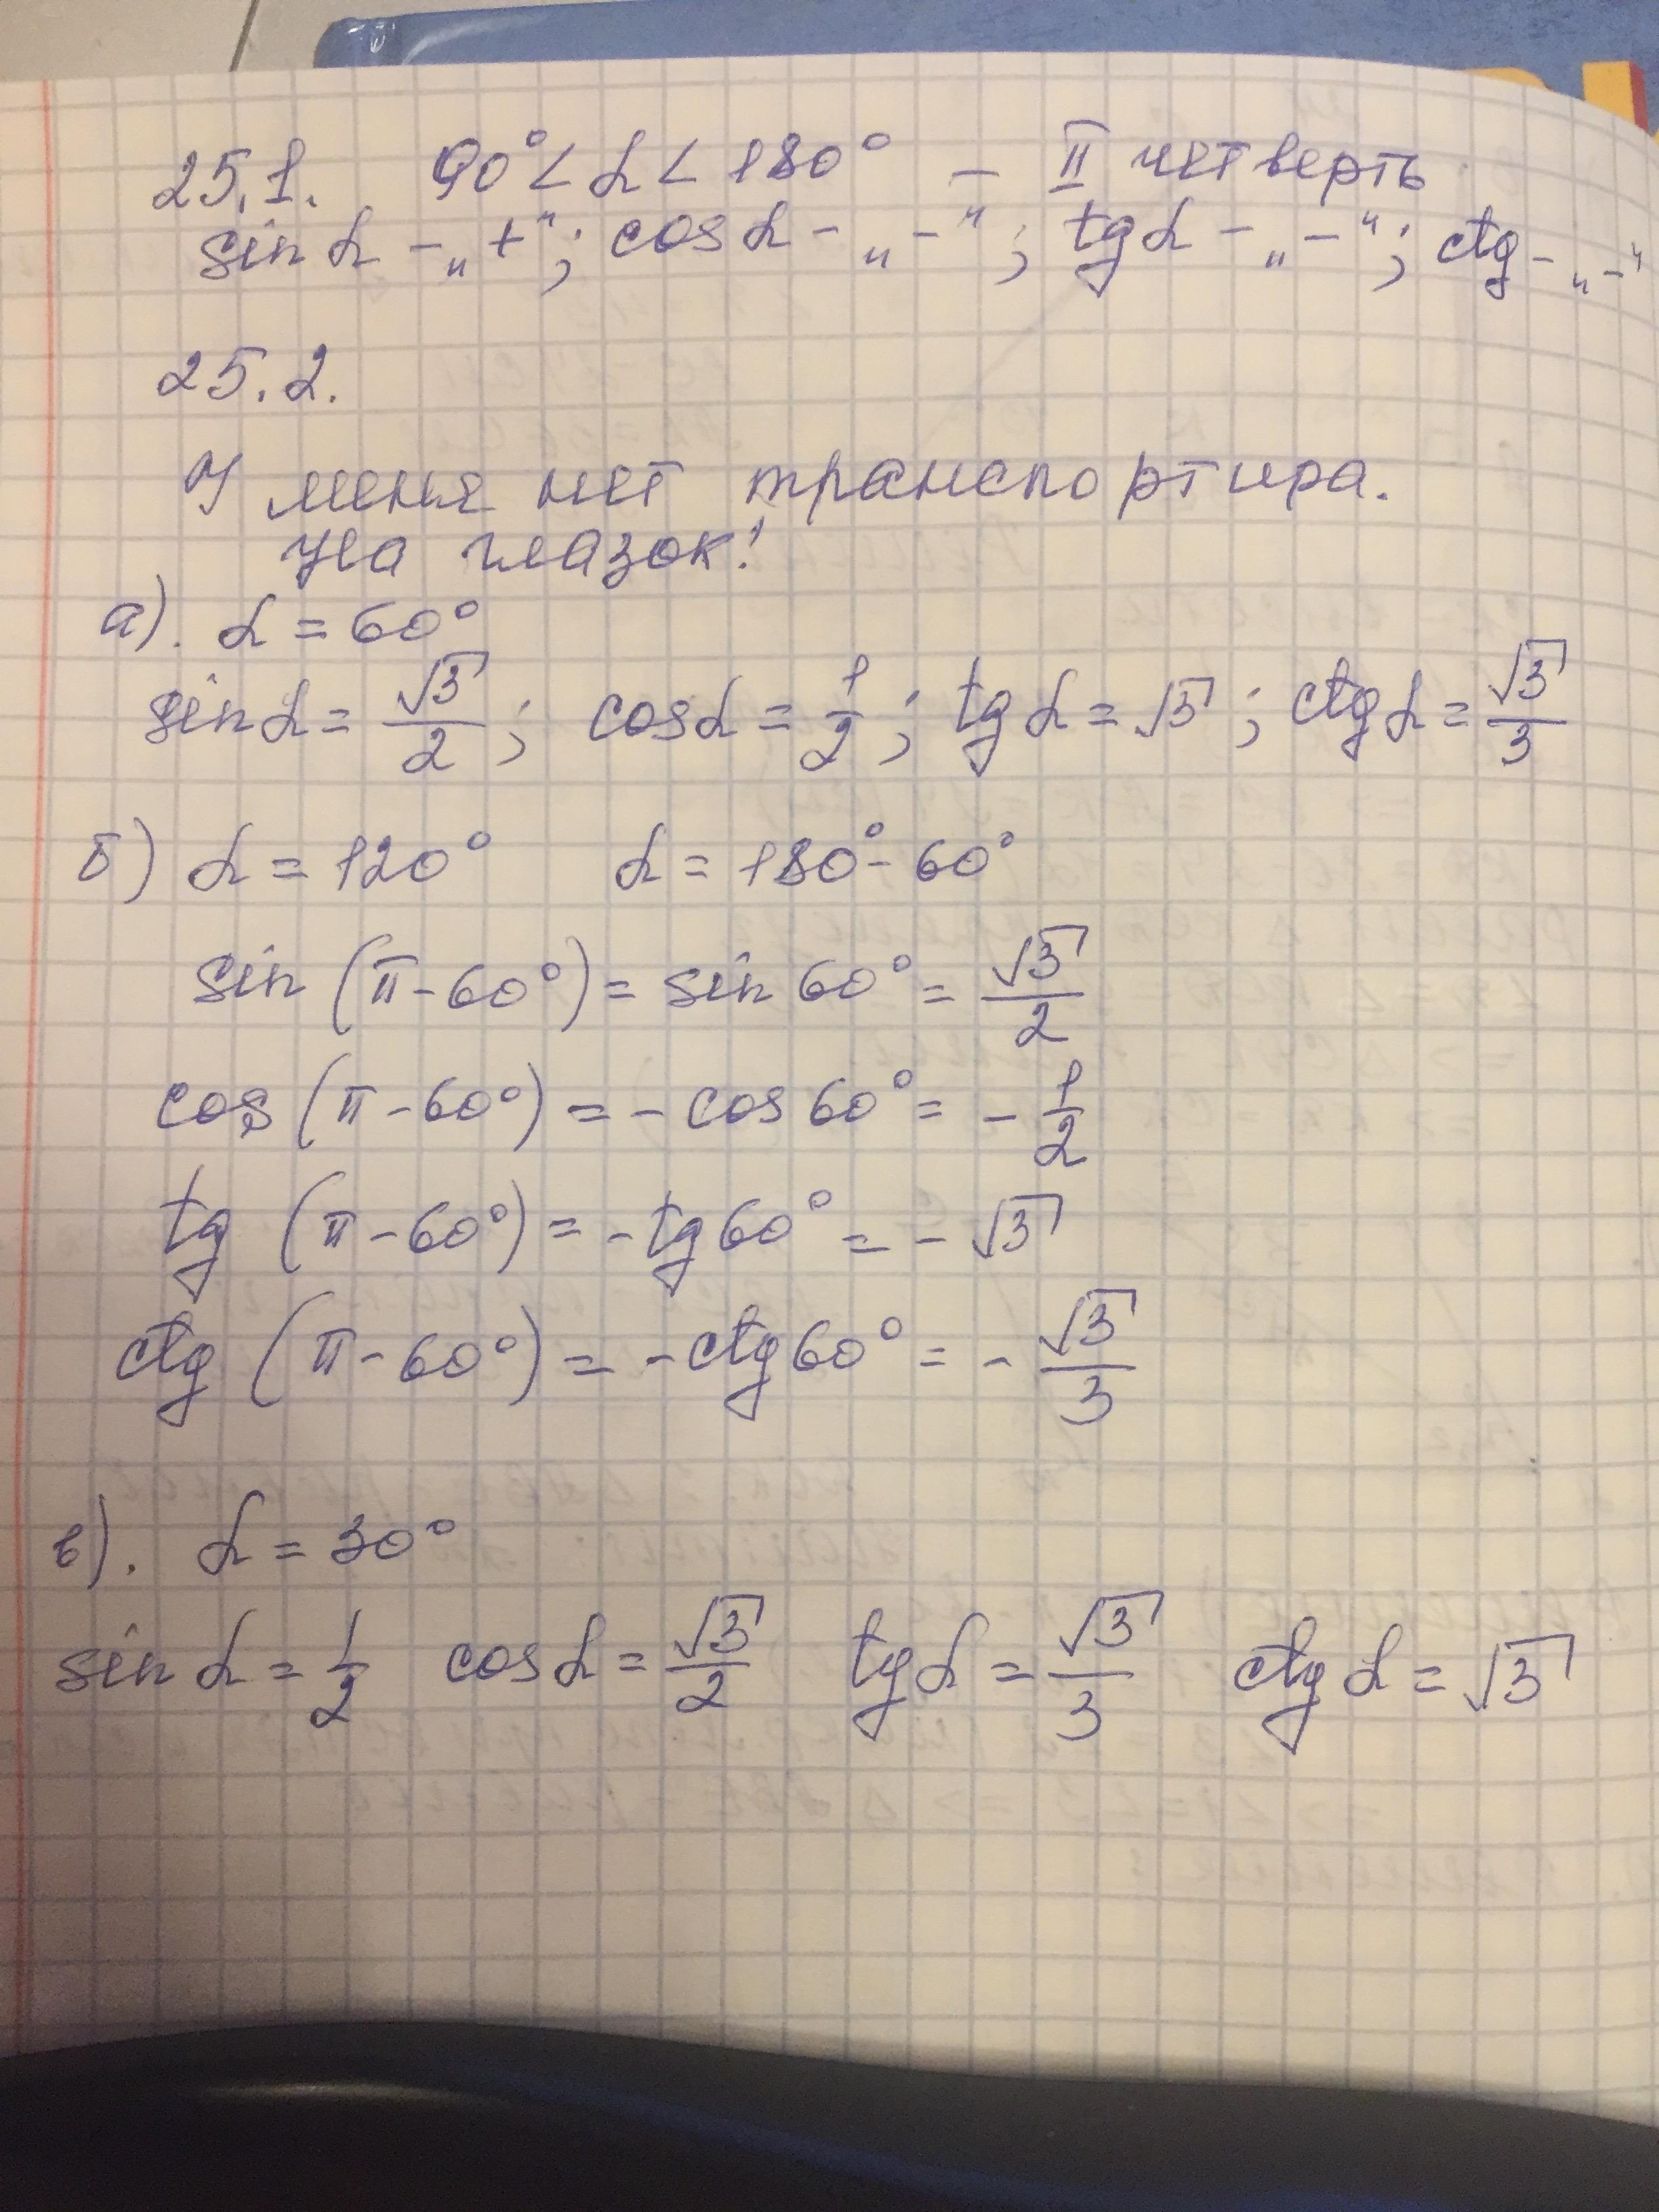 25.1. 90° < α < 180° - II четверть
sin α - „+“; cos α - „-“; tg α - „-“; ctg - „-“
25.2.
У меня нет транспортира.
На глазок!
а). α = 60°
sin α = √3/2; cos α = 1/2; tg α = √3; ctg α = √3/3
б) α = 120° α = 180° - 60°
sin (π - 60°) = sin 60° = √3/2
cos (π - 60°) = - cos 60° = - 1/2
tg (π - 60°) = - tg 60° = - √3
ctg (π - 60°) = - ctg 60° = - √3/3
в). α = 30°
sin α = 1/2 cos α = √3/2 tg α = √3/3 ctg α = √3